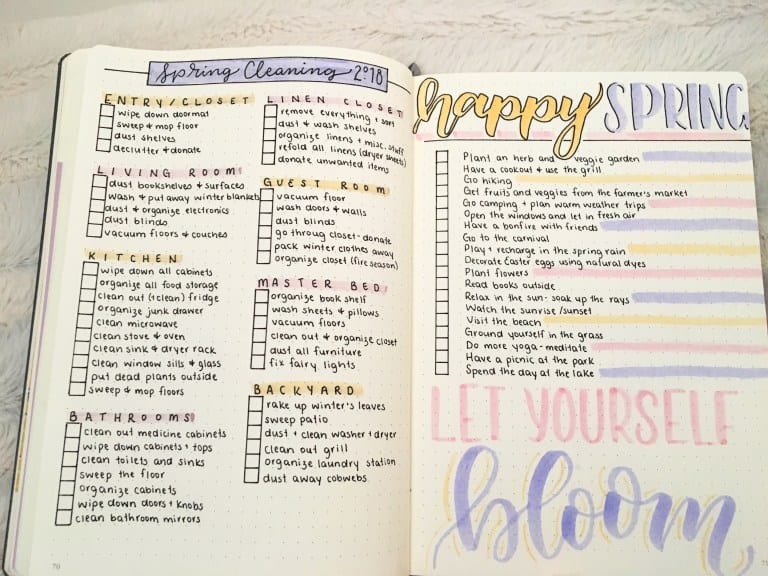 Spring Cleaning 2018
ENTRY/CLOSET
wipe down doormat
sweep & mop floor
dust shelves
declutter & donate
LIVING ROOM
dust bookshelves & surfaces
wash & put away winter blankets
dust & organize electronics
dust blinds
vacuum floors & couches
KITCHEN
wipe down all cabinets
organize all food storage
clean out (+clean) fridge
organize junk drawer
clean microwave
clean stove & oven
clean sink & dryer rack
clean window sills & glass
put dead plants outside
sweep & mop floors
BATHROOMS
clean out medicine cabinets
wipe down cabinets + tops
clean toilets and sinks
sweep the floor
organize cabinets
wipe down doors + knobs
clean bathroom mirrors
70
LINEN CLOSET
remove everything + sort
dust & wash shelves
organize linens + misc. stuff
refold all linens (dryer sheets)
donate unwanted items
GUEST ROOM
vacuum floor
wash doors & walls
dust blinds
go throug closet-donate
pack winter clothes away
organize closet (fire season)
MASTER BED
organize book shelf
wash sheets & pillows
vacuum floors
clean out & organize closet
dust all furniture
fix fairy lights
BACKYARD
rake up winter's leaves
sweep patio
dust + clean washer + dryer
clean out grill
organize laundry station
dust away cobwebs
happy SPRING
Plant an herb and veggie garden
Have a cookout & use the grill
Go hiking
Get fruits and veggies from the farmer's market
Go camping + plan warm weather trips
Open the windows and let in fresh air
Have a bonfire with friends
Go to the carnival
Play + recharge in the spring rain
Decorate Easter eggs using natural dyes
Plant flowers
Read books outside
Relax in the sun - soak up the rays
Watch the sunrise/sunset
Visit the beach
Ground yourself in the grass
Do more yoga - meditate
Have a picnic at the park
Spend the day at the lake
LET YOURSELF
bloom